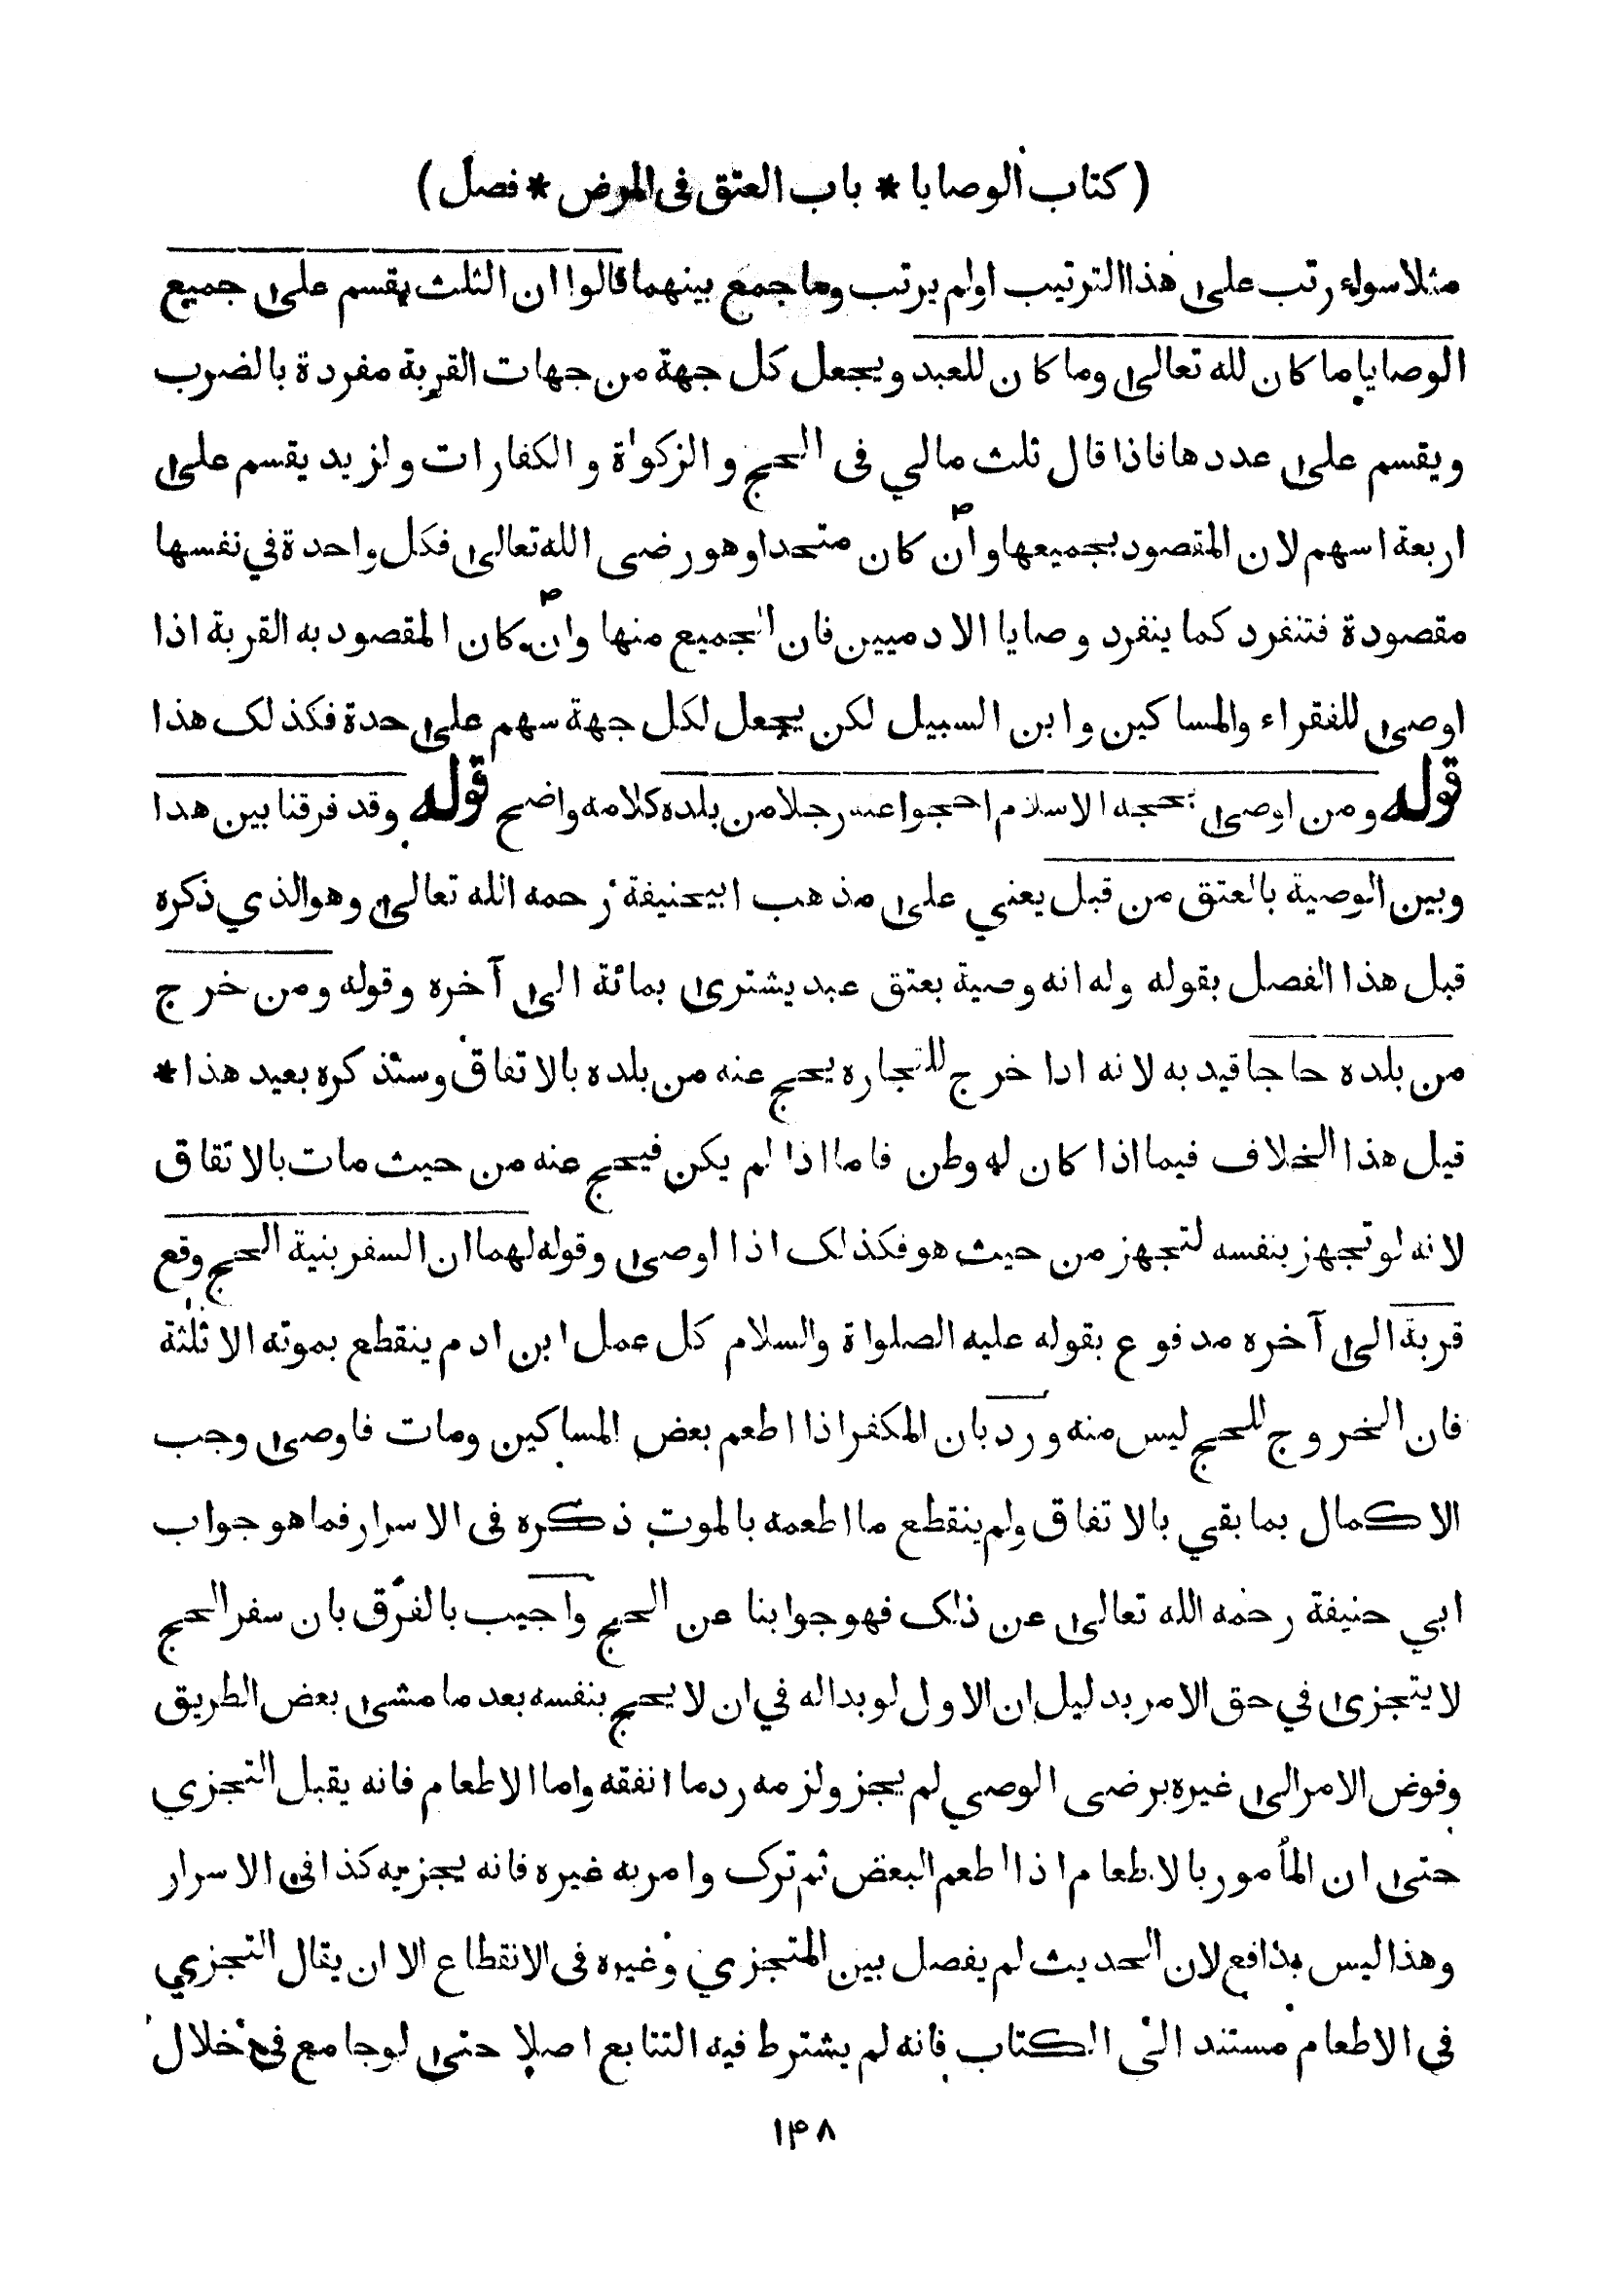 ( كتاب الوصايا * باب العتق فى المرض * فصل )
مثلا سواء رتب على هذا الترتيب اولم يرتب وما جمع بينهما قالوا ان الثلث يقسم على جميع
الوصايا ما كان لله تعالى وما كان للعبد ويجعل كل جهة من جهات القربة مفردة بالضرب
ويقسم على عددها فاذا قال ثلث مالي فى الحج والزكوٰة والكفارات ولزيد يقسم على
اربعة اسهم لان المقصود بجميعها وان كان متحدا وهو رضى الله تعالى فكل واحدة في نفسها
مقصودة فتنفرد كما ينفرد وصايا الادميين فان الجميع منها وان كان المقصود به القربة اذا
اوصى للفقراء والمساكين وابن السبيل لكن يجعل لكل جهة سهم على حدة فكذلك هذا
قوله ومن اوصى بحجه الاسلام احجوا عنه رجلا من بلده كلامه واضح قوله وقد فرقنا بين هدا
وبين الوصية بالعتق من قبل يعني على مذهب ابيحنيفة رحمه الله تعالى وهو الذي ذكره
قبل هذا الفصل بقوله وله انه وصية بعتق عبد يشترى بمائة الى آخره وقوله ومن خرج
من بلده حاجا قيد به لانه ادا خرج للتجاره يحج عنه من بلده بالاتفاق وسنذكره بعيد هذا *
قيل هذا الخلاف فيما اذا كان له وطن فاما اذا لم يكن فيحج عنه من حيث مات بالاتفاق
لانه لو تجهز بنفسه لتجهز من حيث هو فكذلك اذا اوصى وقوله لهما ان السفر بنية الحج وقع
قربة الى آخره مدفوع بقوله عليه الصلواة والسلام كل عمل ابن ادم ينقطع بموته الا ثلثة
فان الخروج للحج ليس منه ورد بان المكفر اذا اطعم بعض المساكين ومات فاوصى وجب
الاكمال بما بقي بالاتفاق ولم ينقطع ما اطعمه بالموت ذكره فى الاسرار فما هو جواب
ابي حنيفة رحمه الله تعالى عن ذلك فهو جوابنا عن الحج واجيب بالفرق بان سفر الحج
لا يتجزى في حق الامر بدليل ان الاول لو بداله في ان لا يحج بنفسه بعد ما مشى بعض الطريق
وفوض الامر الى غيره برضى الوصي لم يجز ولزمه رد ما انفقه واما الاطعام فانه يقبل التجزي
حتى ان المأمور بالاطعام اذا اطعم البعض ثم ترك وامر به غيره فانه يجزيه كذا فى الاسرار
وهذا ليس بدافع لان الحديث لم يفصل بين المتجزي وغيره فى الانقطاع الا ان يقال التجزي
فى الاطعام مستند الى الكتاب فانه لم يشترط فيه التتابع اصلا حتى لو جامع فى خلال
۱۴۸